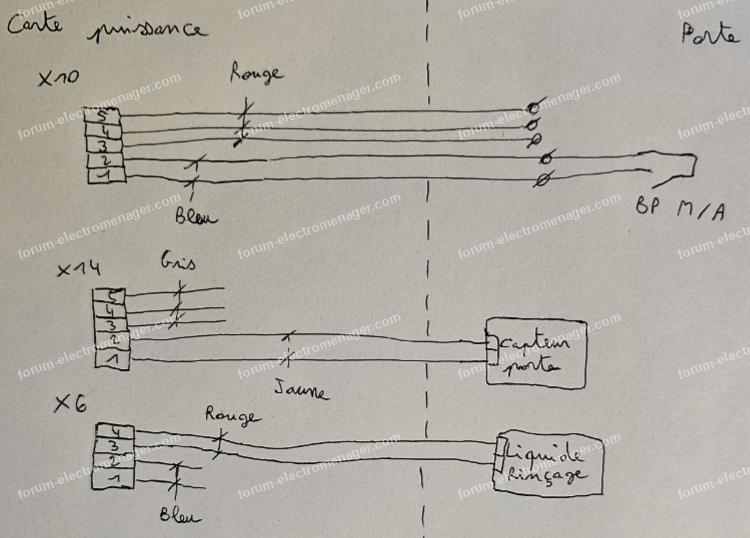 Carte puissance
Porte
X10
Rouge
5
4
3
2
1
Bleu
BP M/A
X14
Gris
5
4
3
2
1
Capteur
porte
Jaune
X6
Rouge
4
3
2
1
Liquide
Rinçage
Bleu
forum-electromenager.com